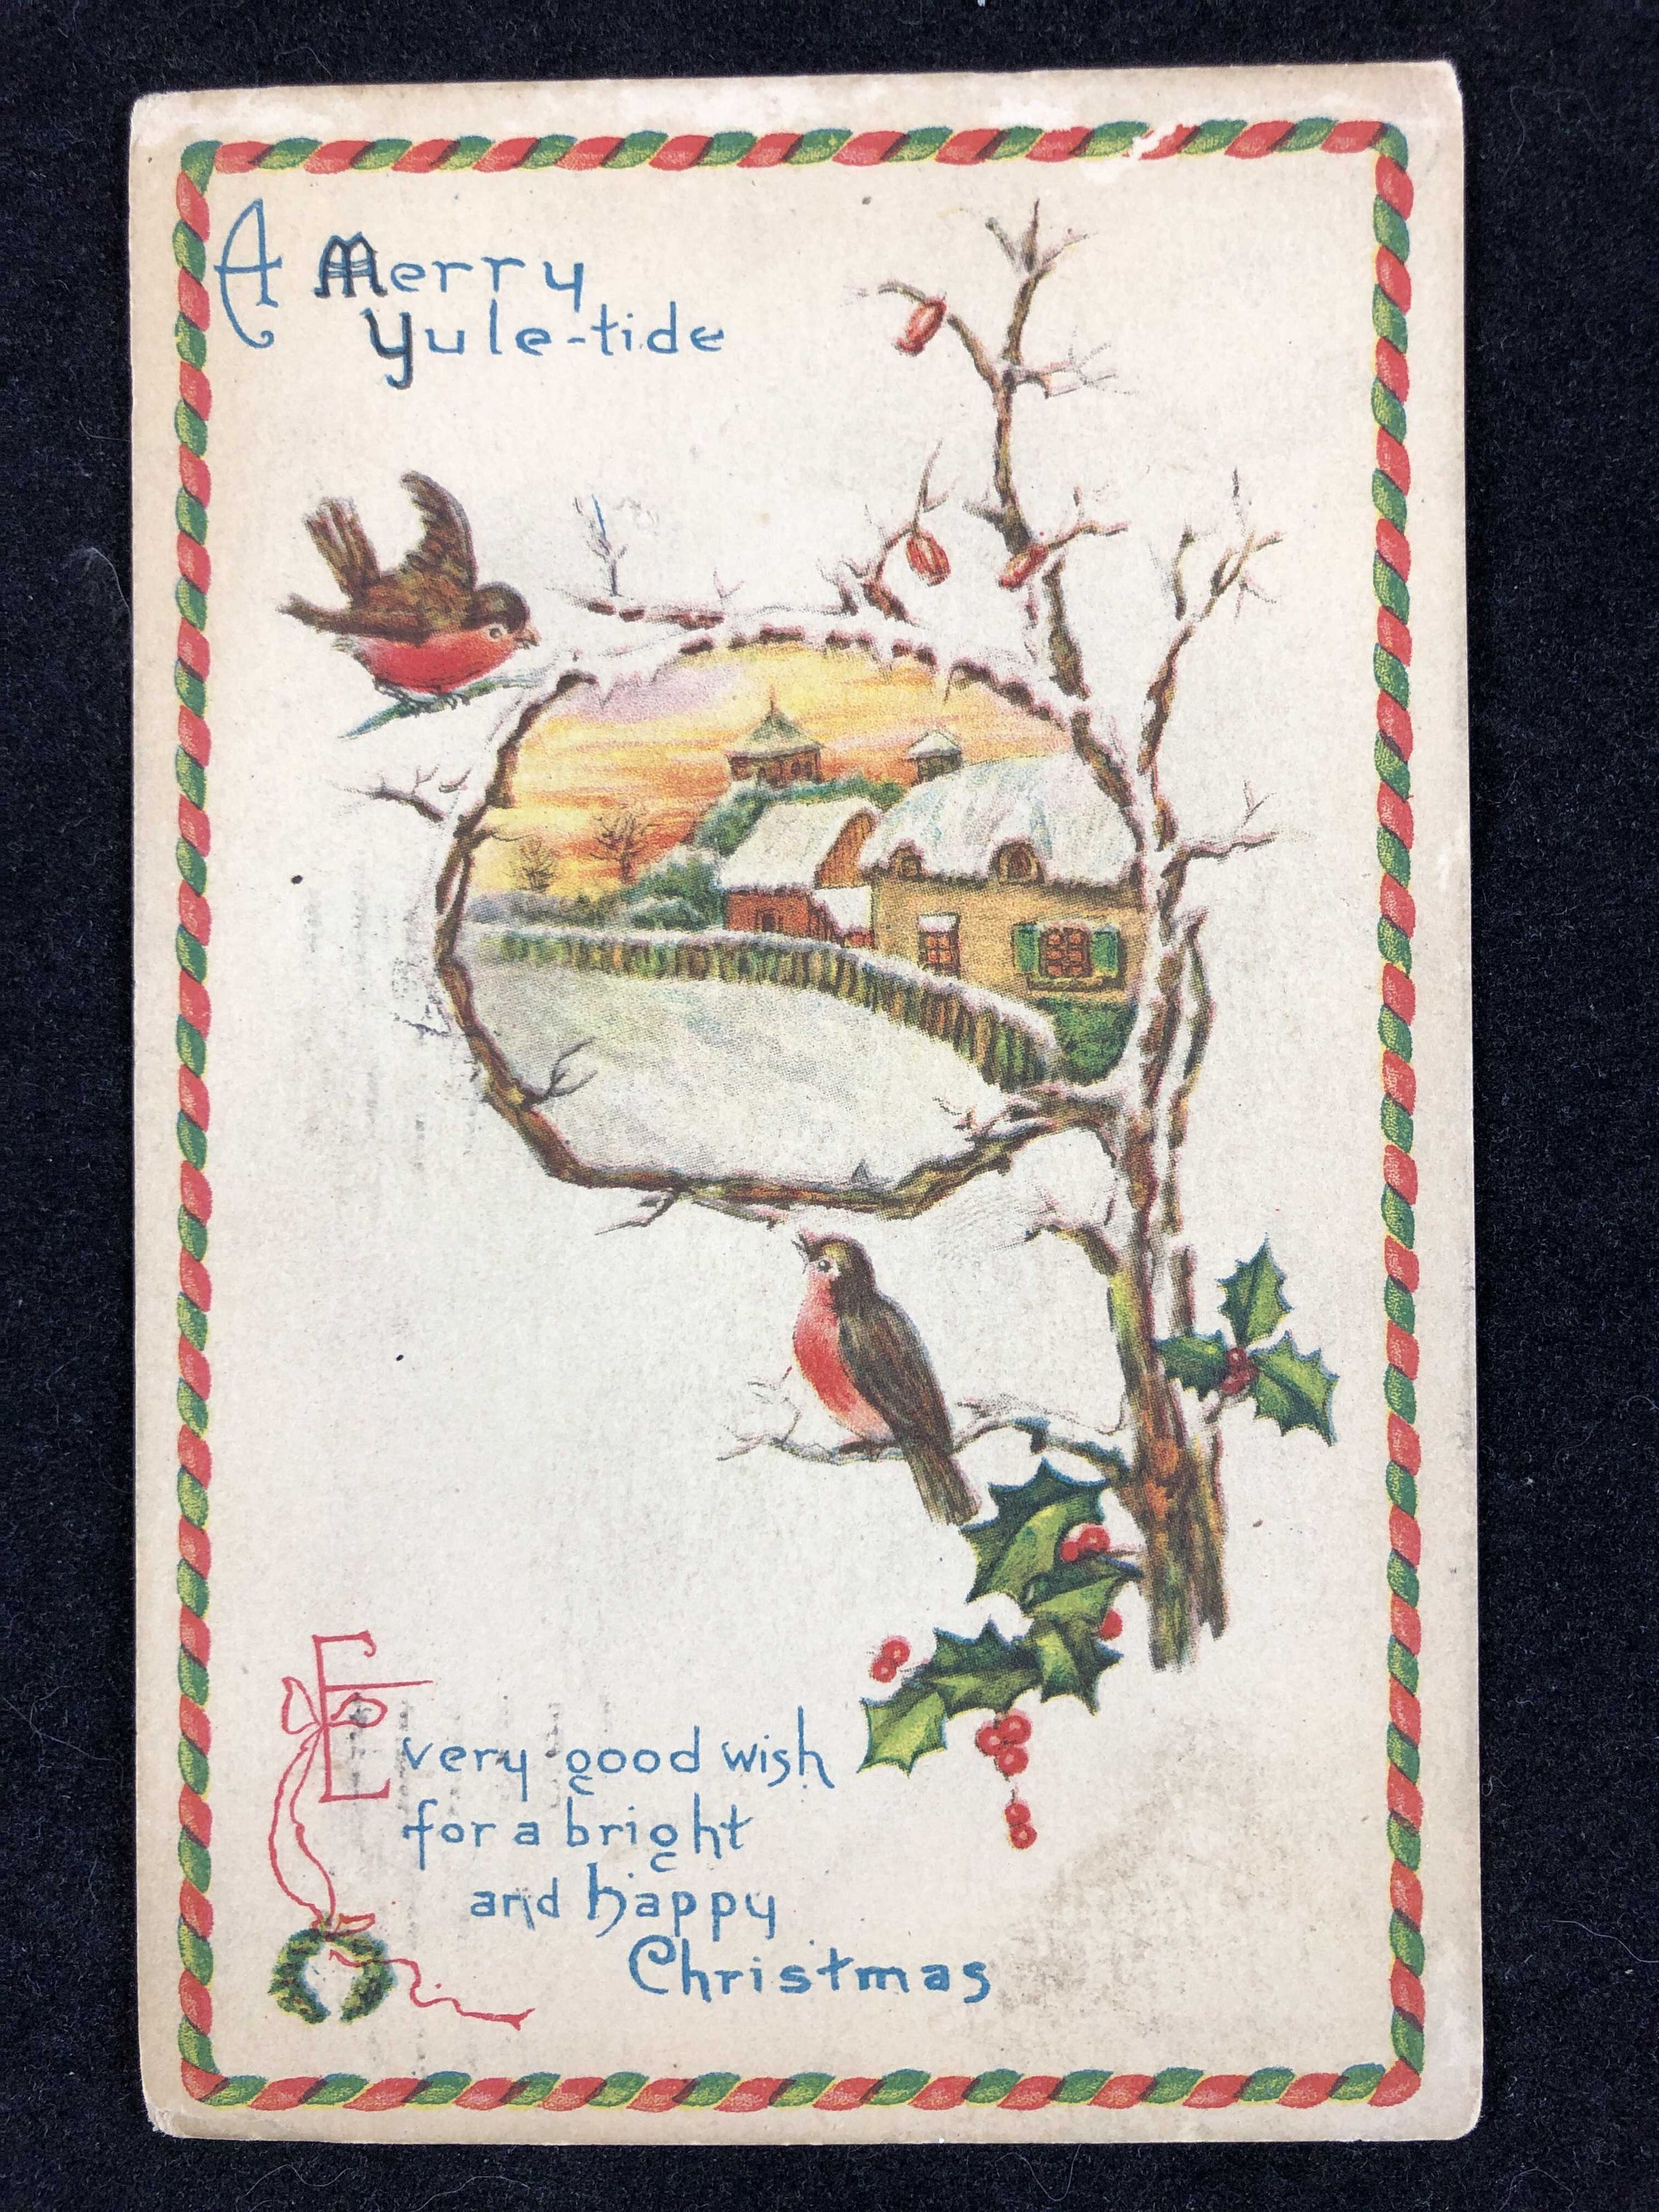 A Merry
Yule-tide
Every good wish
for a bright
and happy
Christmas